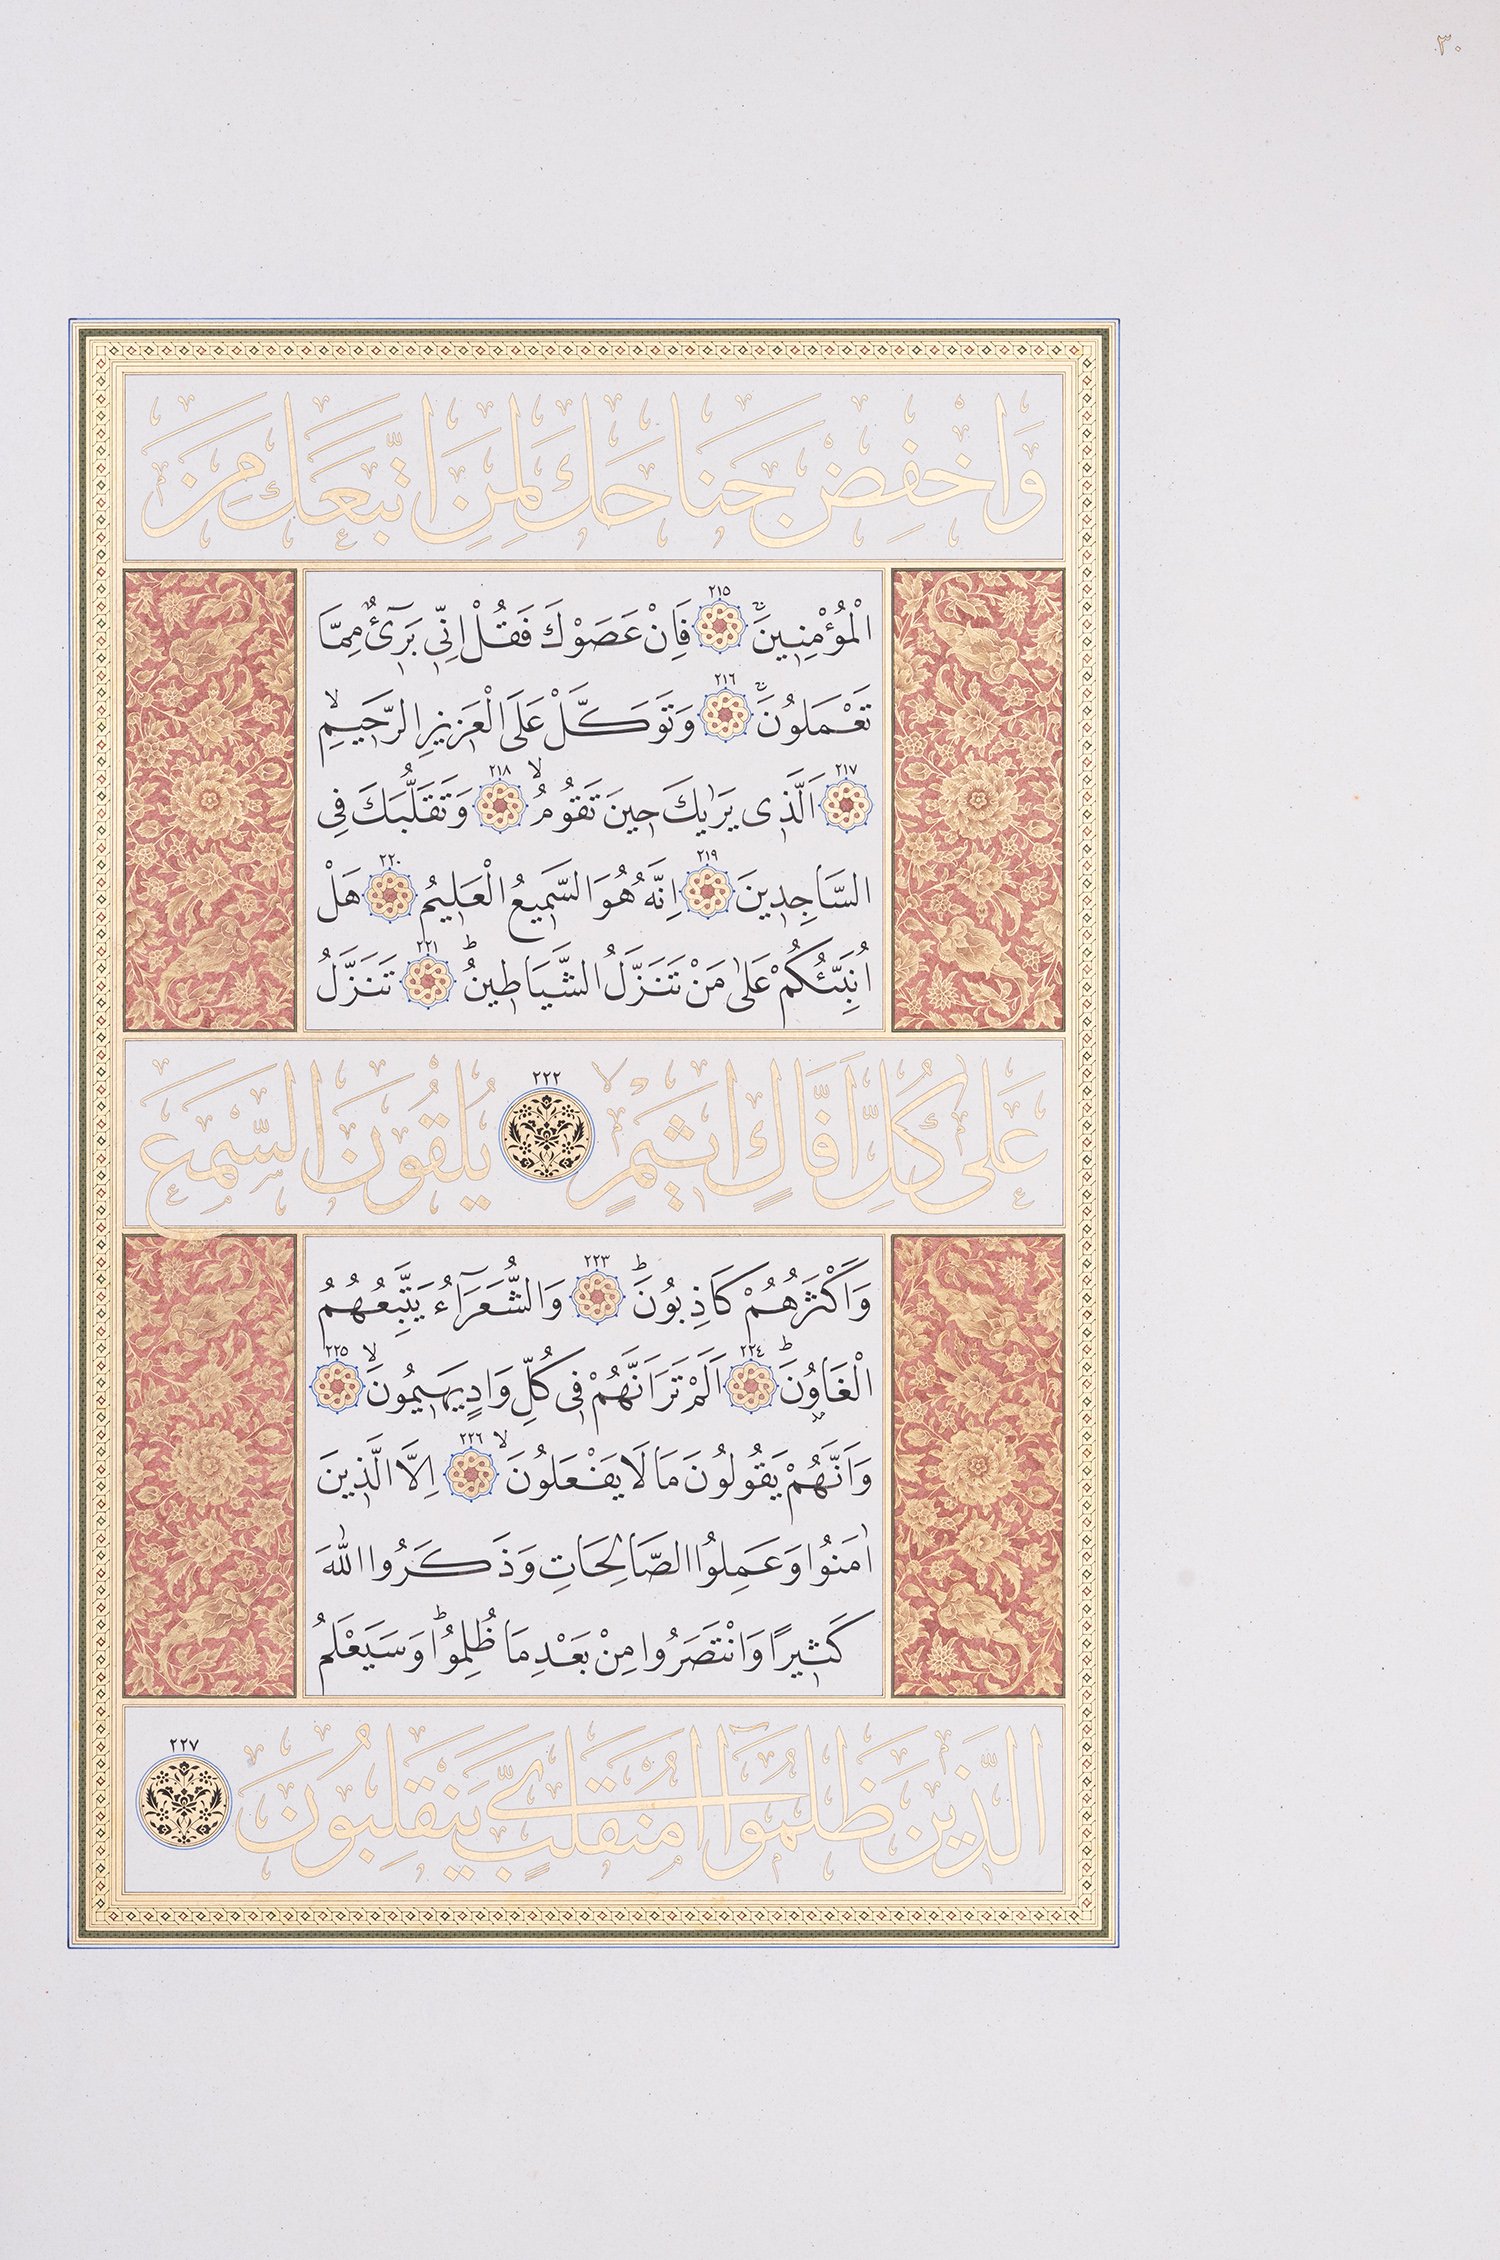 ٣٠
وَاخْفِضْ جَنَاحَكَ لِمَنِ اتَّبَعَكَ مِنَ
الْمُؤْمِنِينَ ٢١٥ فَاِنْ عَصَوْكَ فَقُلْ اِنِّى بَرِٓئٌ مِمَّا
تَعْمَلُونَ ٢١٦ وَتَوَكَّلْ عَلَى الْعَزِيزِ الرَّحِيمِ
٢١٧ اَلَّذِى يَرٰيكَ حِينَ تَقُومُ ٢١٨ وَتَقَلُّبَكَ فِى
السَّاجِدِينَ ٢١٩ اِنَّهُ هُوَ السَّمِيعُ الْعَلِيمُ ٢٢٠ هَلْ
اُنَبِّئُكُمْ عَلٰى مَنْ تَنَزَّلُ الشَّيَاطِينُ ٢٢١ تَنَزَّلُ
عَلٰى كُلِّ اَفَّاكٍ اَثِيمٍ ٢٢٢ يُلْقُونَ السَّمْعَ
وَاَكْثَرُهُمْ كَاذِبُونَ ٢٢٣ وَالشُّعَرَٓاءُ يَتَّبِعُهُمُ
الْغَاوُنَ ٢٢٤ اَلَمْ تَرَ اَنَّهُمْ فِى كُلِّ وَادٍ يَهِيمُونَ ٢٢٥
وَاَنَّهُمْ يَقُولُونَ مَا لَا يَفْعَلُونَ ٢٢٦ اِلَّا الَّذِينَ
اٰمَنُوا وَعَمِلُوا الصَّالِحَاتِ وَذَكَرُوا اللّٰهَ
كَثِيرًا وَانْتَصَرُوا مِنْ بَعْدِ مَا ظُلِمُوا وَسَيَعْلَمُ
الَّذِينَ ظَلَمُٓوا اَىَّ مُنْقَلَبٍ يَنْقَلِبُونَ ٢٢٧